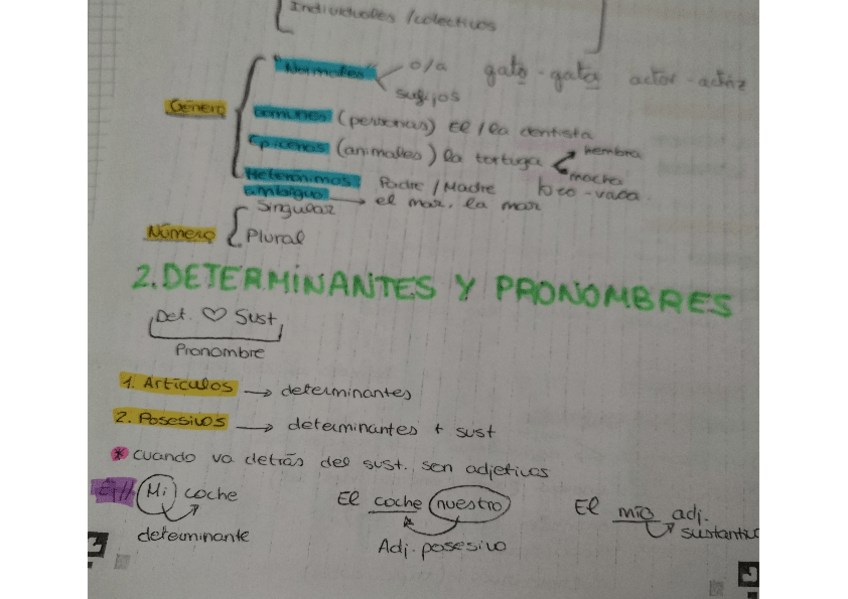 Individuales / colectivos
"Normales" o/a gato - gata actor - actriz
sufijos
Género
comunes (personas) El / la dentista
Epicenos (animales) la tortuga hembra
macho
Heterónimos Padre / Madre toro - vaca.
ambiguo → el mar, la mar
Singular
Número
Plural
2. DETERMINANTES Y PRONOMBRES
Det. ♡ Sust
Pronombre
1. Artículos → determinantes
2. Posesivos → determinantes + sust
* cuando va detrás del sust. sen adjetivos
Ej// Mi coche El coche nuestro El mío adj.
sustantivo
determinante Adj. posesivo